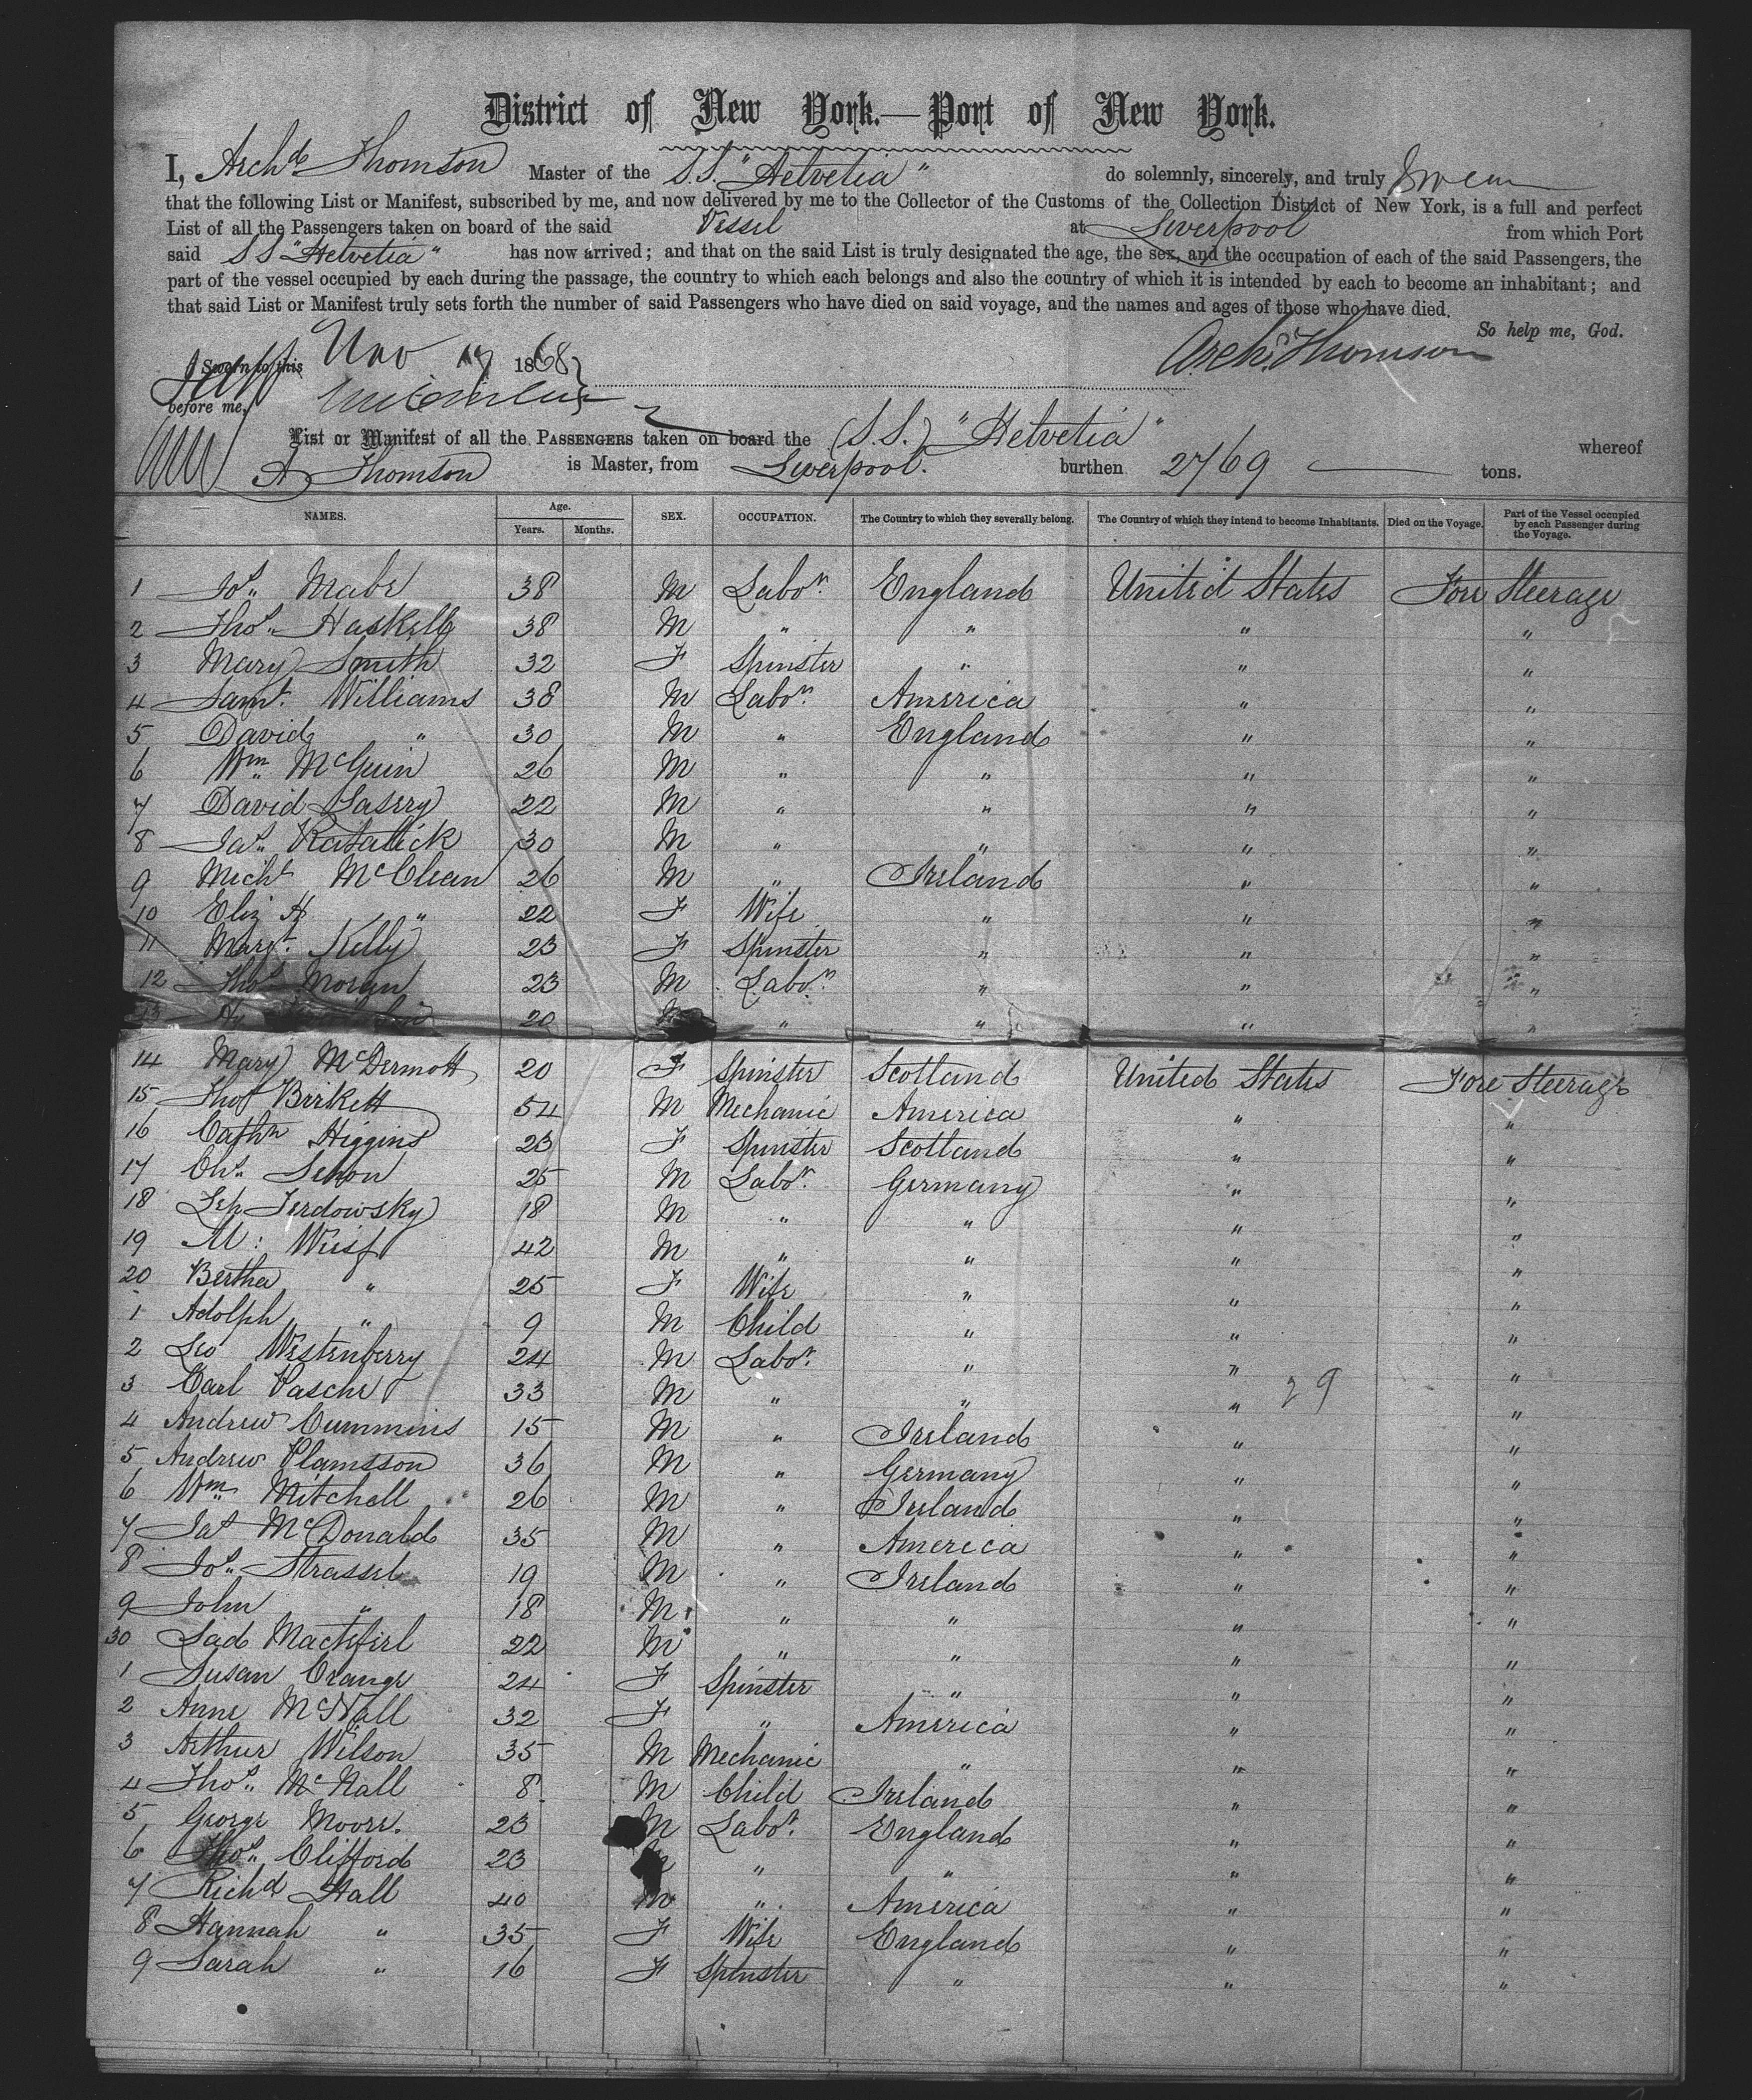 District of New York.—Port of New York.
I, Archd Thomson Master of the S.S. "Helvetia" do solemnly, sincerely, and truly Swear
that the following List or Manifest, subscribed by me, and now delivered by me to the Collector of the Customs of the Collection District of New York, is a full and perfect
List of all the Passengers taken on board of the said Vessel at Liverpool from which Port
said S S "Helvetia" has now arrived; and that on the said List is truly designated the age, the sex, and the occupation of each of the said Passengers, the
part of the vessel occupied by each during the passage, the country to which each belongs and also the country of which it is intended by each to become an inhabitant; and
that said List or Manifest truly sets forth the number of said Passengers who have died on said voyage, and the names and ages of those who have died.
So help me, God.
Sworn to this Nov 17 1868 Archd. Thomson
before me,
List or Manifest of all the PASSENGERS taken on board the (S.S.) "Helvetia" whereof
A Thomson is Master, from Liverpool. burthen 2769 tons.
NAMES. Age. Years. Months. SEX. OCCUPATION. The Country to which they severally belong. The Country of which they intend to become Inhabitants. Died on the Voyage. Part of the Vessel occupied by each Passenger during the Voyage.
1 Jos. Mabe 38 M Labor. England United States Fore Steerage
2 Thos. Haskell 38 M " " " "
3 Mary Smith 32 F Spinster " " "
4 Saml. Williams 38 M Labor. America " "
5 David " 30 M " England " "
6 Wm. McGuin 26 M " " " "
7 David 22 M " " " "
8 Jas. 30 M " " " "
9 Michl McClean 26 M " Ireland " "
10 Eliz H " 22 F Wife " " "
11 Margt. Kelly 23 F Spinster " " "
12 Thos Moran 23 M Labor. " " "
13 Hy 20 M " " " "
14 Mary McDermott 20 F Spinster Scotland United States Fore Steerage
15 Thos Birkett 54 M Mechanic America " "
16 Cathn Higgins 23 F Spinster Scotland " "
17 Chs. Schon 25 M Labor. Germany " "
18 Leh Jerdowsky 18 M " " " "
19 M: Weisf 42 M " " " "
20 Bertha " 25 F Wife " " "
1 Adolph " 9 M Child " " "
2 Leo Westenberry 24 M Labor. " " "
3 Carl Pasche 33 M " " " 29 "
4 Andrew Cummins 15 M " Ireland " "
5 Andrew Plamsson 36 M " Germany " "
6 Wm. Mitchell 26 M " Ireland " "
7 Jas McDonald 35 M " America " "
8 Jos. Strassel 19 M " Ireland " "
9 John " 18 M " " " "
30 Lad 22 M " " " "
1 Susan Crange 24 F Spinster " " "
2 Anne McNall 32 F " America " "
3 Arthur Wilson 35 M Mechanic " " "
4 Thos. McNall 8 M Child Ireland " "
5 George Moore. 23 M Labor. England " "
6 Thos. Clifford 23 M " " " "
7 Richd Hall 40 M " America " "
8 Hannah " 35 F Wife England " "
9 Sarah " 16 F Spinster " " "